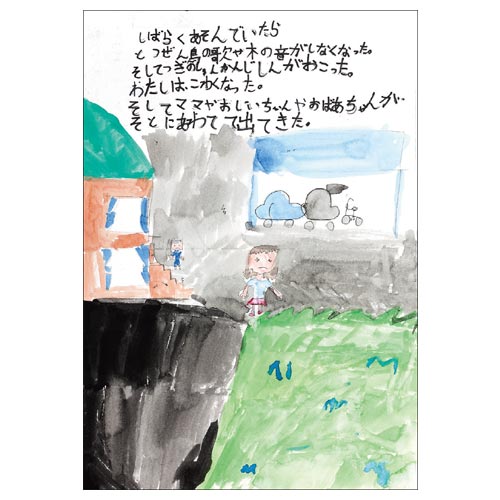 しばらくあそんでいたら
とつぜん鳥の歌や木の音がしなくなった。
そしてつぎのしゅんかんじしんがおこった。
わたしは、こわくなった。
そしてママやおじいちゃんやおばあちゃんが
そとにあわてて出てきた。